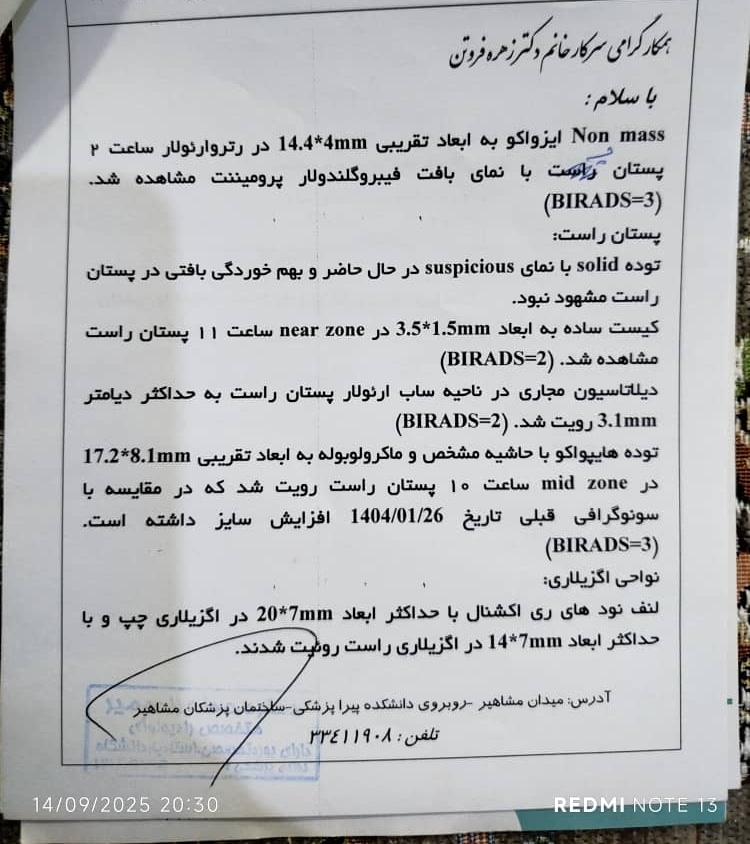 همکار گرامی سرکار خانم دکتر زهره فروتن
با سلام:
Non mass ایزواکو به ابعاد تقریبی 14.4*4mm در رتروارئولار ساعت ۲
پستان راست با نمای بافت فیبروگلندولار پرومیننت مشاهده شد.
(BIRADS=3)
پستان راست:
توده solid با نمای suspicious در حال حاضر و بهم خوردگی بافتی در پستان
راست مشهود نبود.
کیست ساده به ابعاد 3.5*1.5mm در near zone ساعت ۱۱ پستان راست
مشاهده شد. (BIRADS=2)
دیلاتاسیون مجاری در ناحیه ساب ارئولار پستان راست به حداکثر دیامتر
3.1mm رویت شد. (BIRADS=2)
توده هایپواکو با حاشیه مشخص و ماکرولوبوله به ابعاد تقریبی 17.2*8.1mm
در mid zone ساعت ۱۰ پستان راست رویت شد که در مقایسه با
سونوگرافی قبلی تاریخ 1404/01/26 افزایش سایز داشته است.
(BIRADS=3)
نواحی اگزیلاری:
لنف نود های ری اکشنال با حداکثر ابعاد 20*7mm در اگزیلاری چپ و با
حداکثر ابعاد 14*7mm در اگزیلاری راست روئیت شدند.
آدرس: میدان مشاهیر -روبروی دانشکده پیرا پزشکی-ساختمان پزشکان مشاهیر
تلفن: ۳۳۴۱۱۹۰۸
14/09/2025 20:30
REDMI NOTE 13